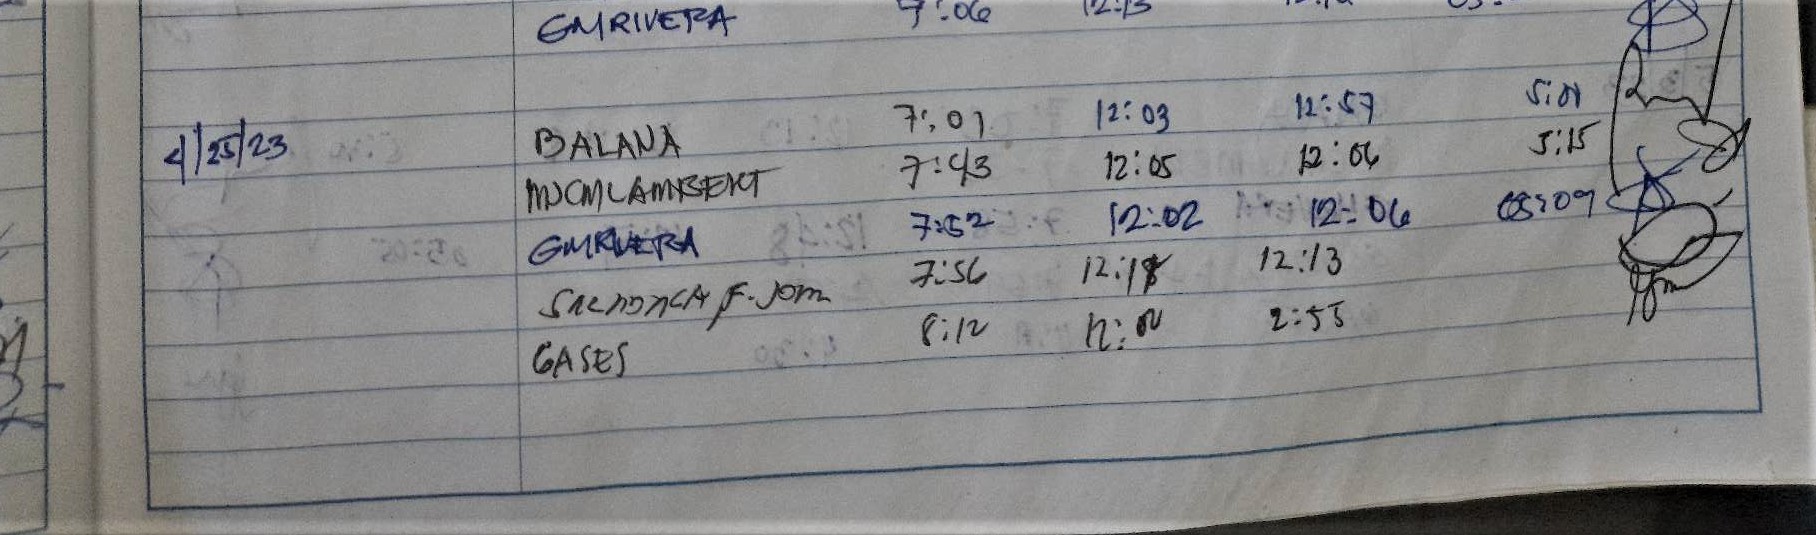 GMRIVERA 7:06 12:13
4/25/23 BALANA 7:01 12:03 12:57 5:01
MJCMLAMBERT 7:43 12:05 12:06 5:15
GMRIVERA 7:52 12:02 12:06 05:09
F. Jom 7:56 12:13
GASES 8:12 2:55